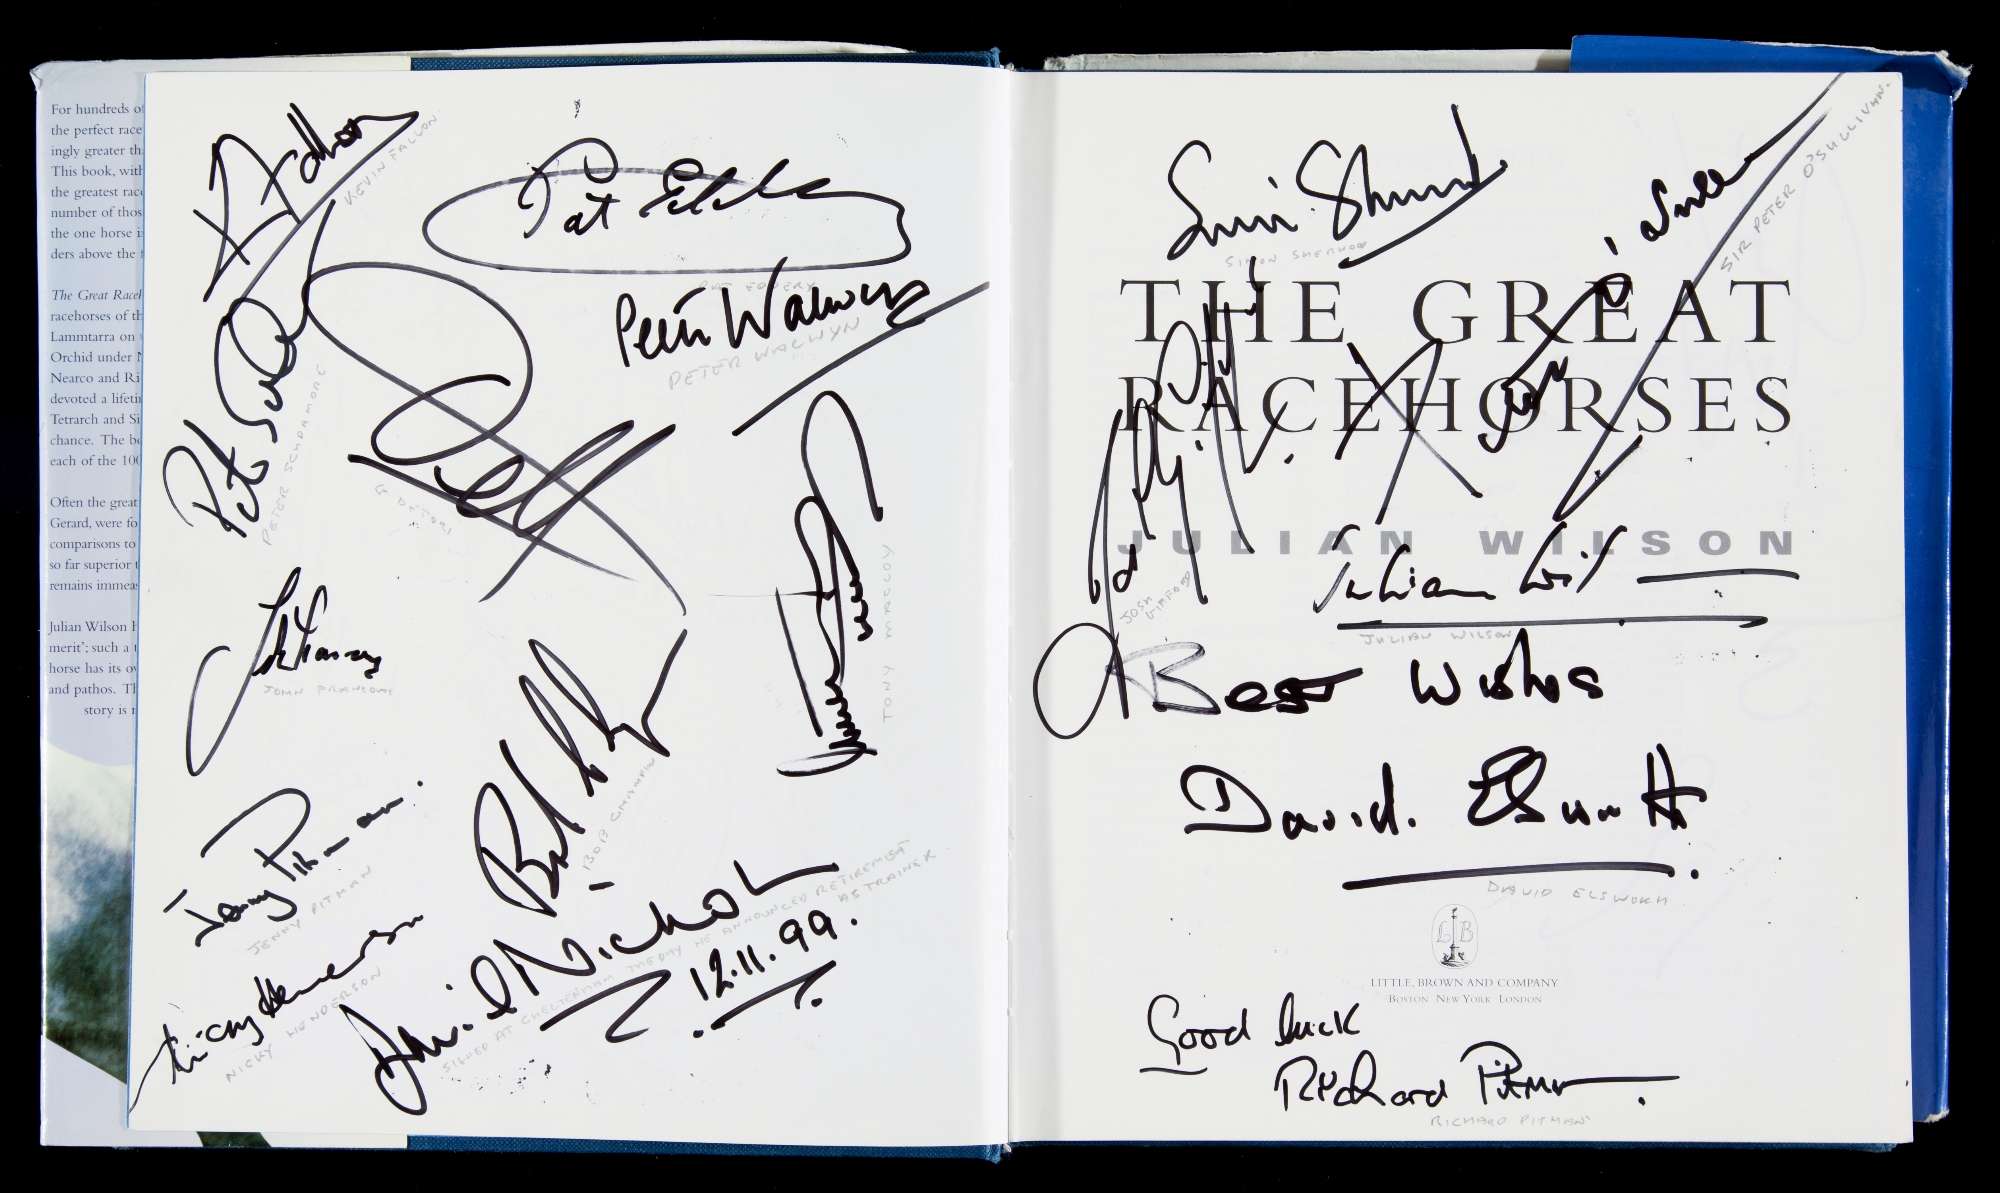 For hundreds of
the perfect race
ingly greater th
This book, with
the greatest race
number of thos
the one horse i
ders above the f
The Great Raceh
racehorses of th
Lammtarra on
Orchid under N
Nearco and Ri
devoted a lifetim
Tetrarch and Si
chance. The be
each of the 100
Often the great
Gerard, were fo
comparisons to
so far superior t
remains immeas
Julian Wilson h
merit'; such a t
horse has its ow
and pathos. Th
story is r
K Fallon
KEVIN FALLON
Pat Eddery
PAT EDDERY
Peter Walwyn
PETER WALWYN
PETER SCUDAMORE
L DETTORI
TONY MACCOY
JOHN FRANCOME
Jenny Pitman.
JENNY PITMAN
Bob Champion
BOB CHAMPION
Nicky Henderson
NICKY HENDERSON
David Nicholson
12.11.99.
SIGNED AT CHELTENHAM THE DAY HE ANNOUNCED RETIREMENT
AS TRAINER
Simon Sherwood
SIMON SHERWOOD
SIR PETER O'SULLIVAN.
THE GREAT
RACEHORSES
JULIAN WILSON
JOSH
GIFFORD
Julian Wilson
JULIAN WILSON
Best Wishes
David. Elsworth
DAVID ELSWORTH
L B
LITTLE, BROWN AND COMPANY
BOSTON NEW YORK LONDON
Good luck
Richard Pitman
RICHARD PITMAN